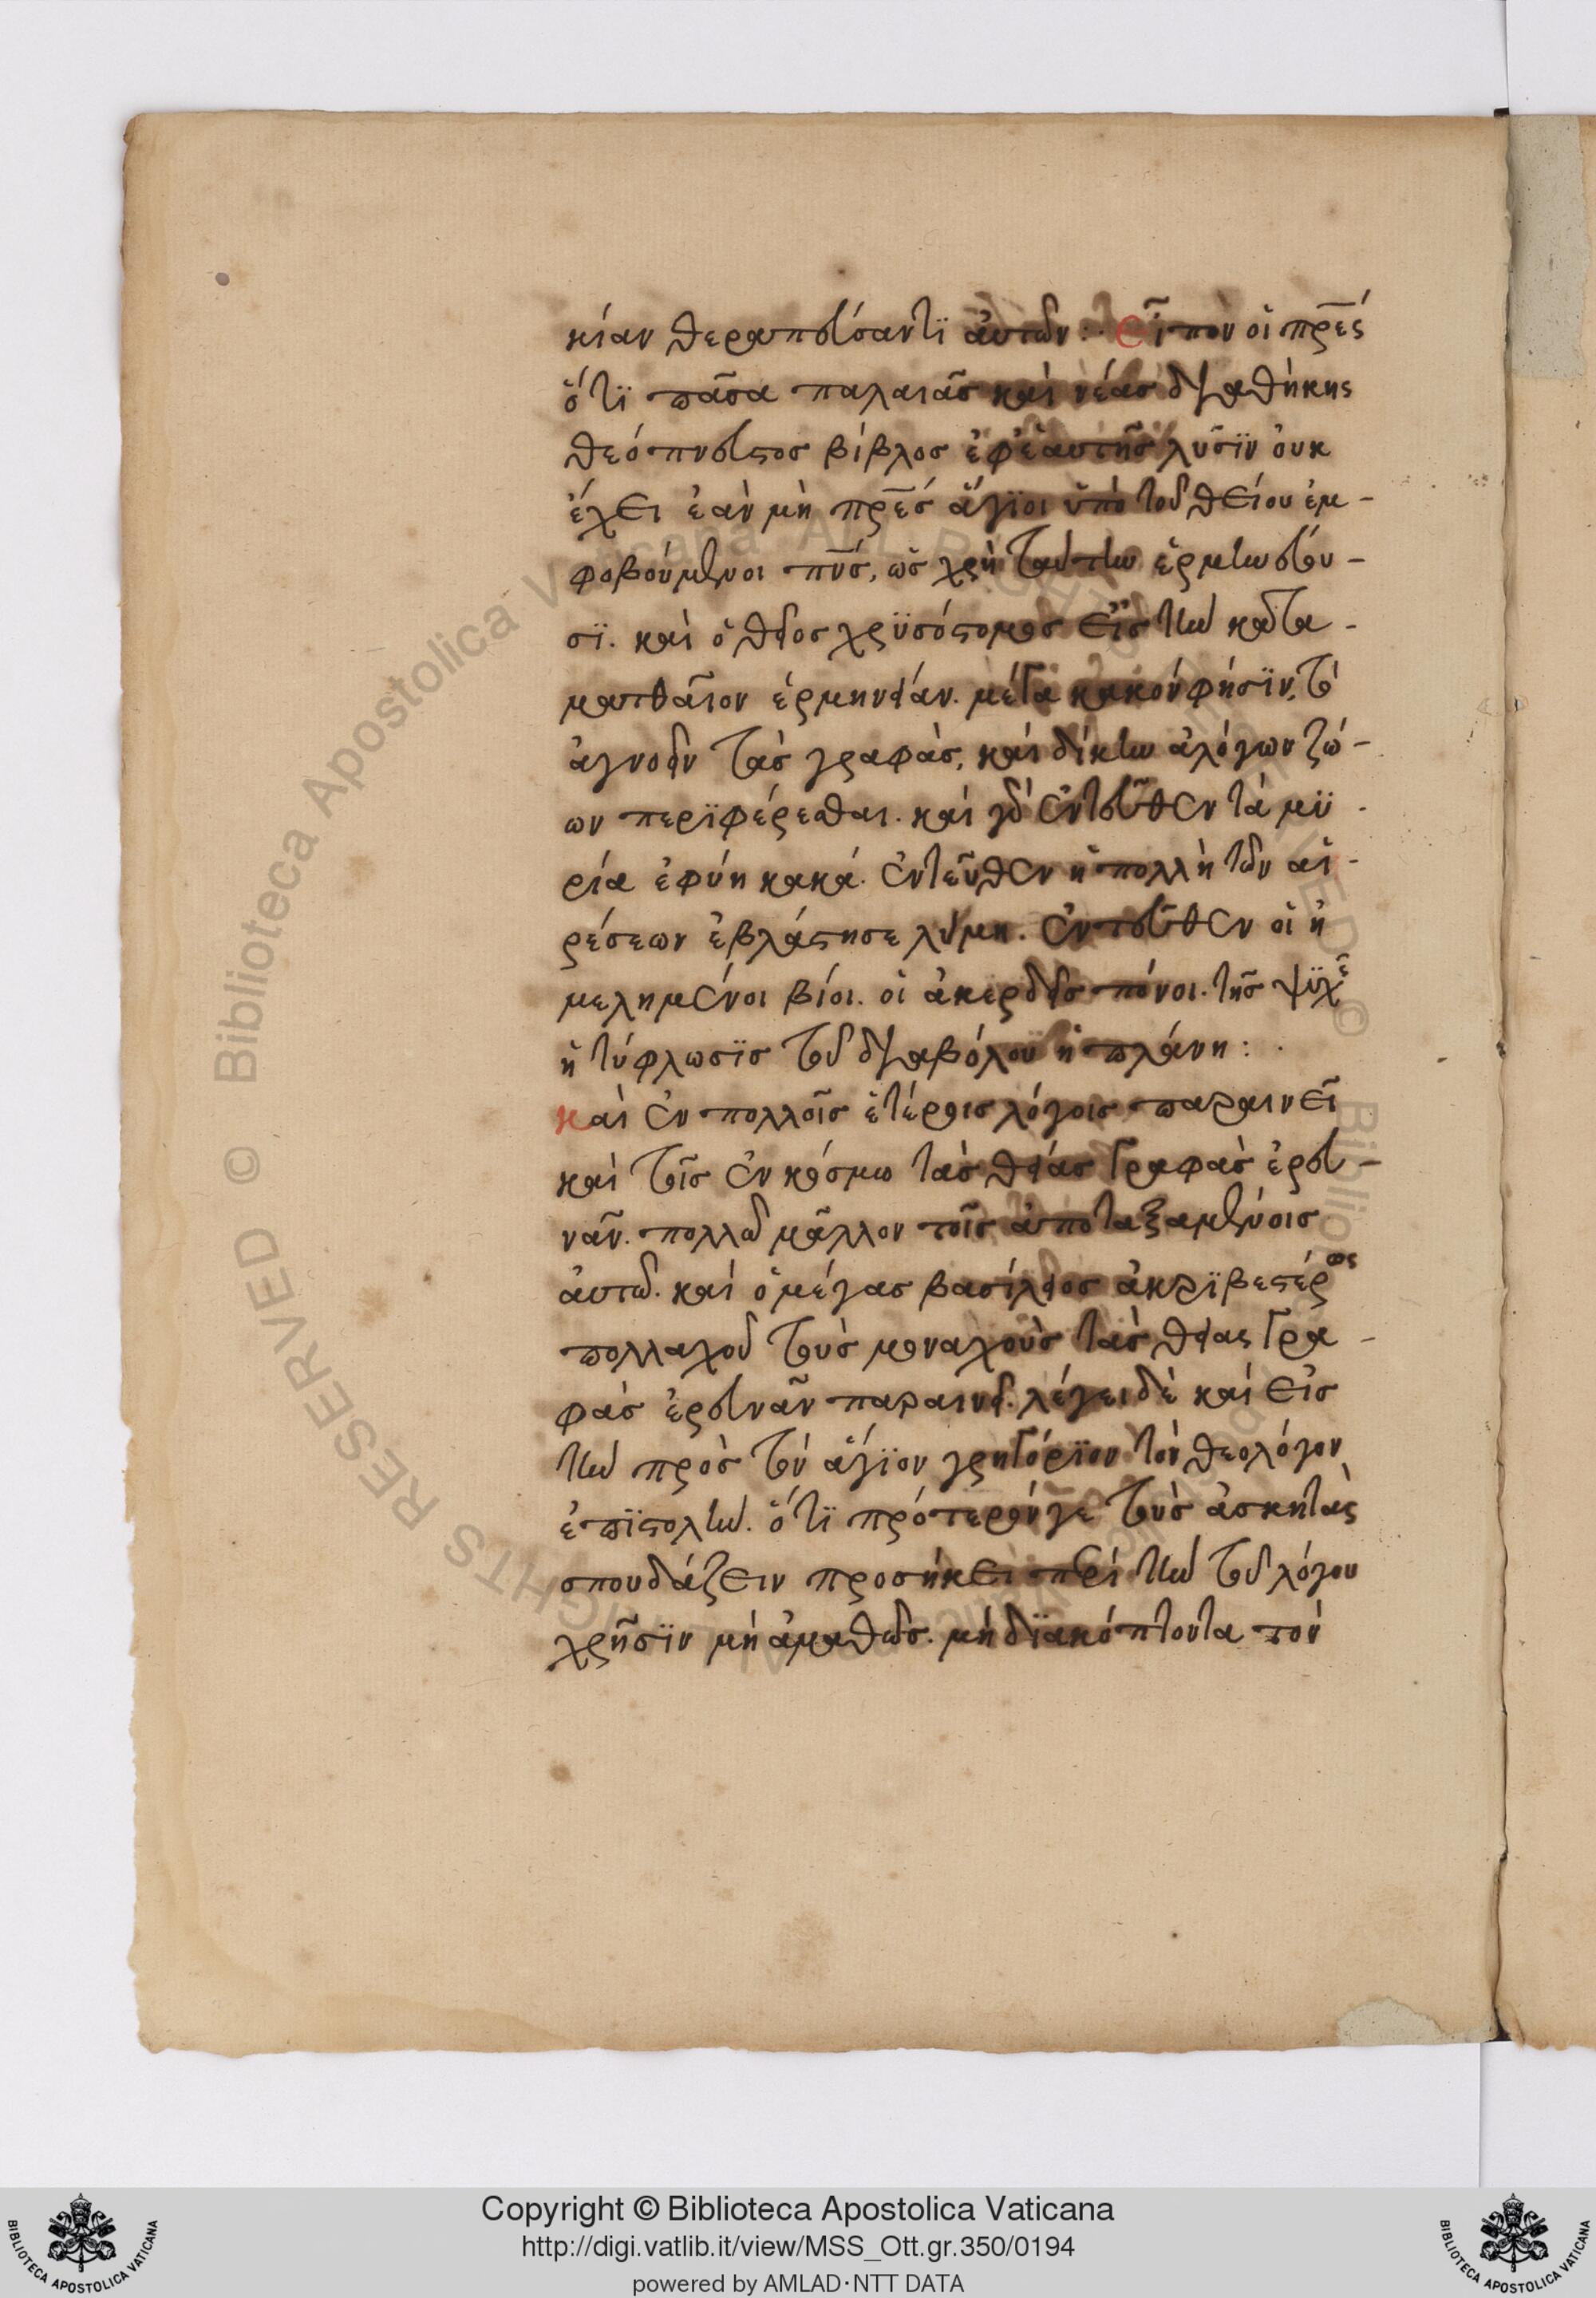 κίαν θεραπεύσαντϊ ἀυτῶν : · εἶπον οἱ πρ̅ες
ὅτϊ πᾶσα παλαιᾶσ καὶ νέασ διαθήκης
θεόπνευστος βίβλοσ ἐφ' ἑαυτῆσ λυσϊν ὀυκ
ἔχει ἐὰν μὴ πρ̅εσ ἅγϊοι ὑπὸ τοῦ θείου ἐμ -
φοβούμενοι πν̅σ, ὡσ χρὴ ταύτην ἑρμηνεύ -
σϊ. καὶ ὁ θεῖοσ χρϋσόστομοσ εἰσ τὴν κατα -
ματθαῖον ἑρμηνείαν. μέγα κακόν φήσϊν, τὸ
ἀγνοεῖν τὰσ γραφὰσ, καὶ δίκην ἀλόγων ζώ -
ων περϊφέρεσθαι. καὶ γὰρ ἐντεῦθεν τὰ μϋ -
ρία ἐφύη κακά. ἐντεῦθεν ἡ πολλὴ τῶν αἱ -
ρέσεων ἐβλάστησε λύμη. ἐντεῦθεν οἱ ἠ
μελημένοι βίοι. οἱ ἀκερδεῖσ πόνοι. τῆσ ψϋχῆσ
ἡ τύφλωσϊσ τοῦ διαβόλου ἡ πλάνη : ·
καὶ ἐν πολλοῖσ ἑτέροισ λόγοισ παραινεῖ
καὶ τοῖσ ἐν κόσμω τὰσ θείασ Γραφὰσ ἐρευ -
νᾶν. πολλῶ μᾶλλον τοῖσ ἀποταξαμένοισ
ἀυτῶ. καὶ ὁ μέγασ βασίλειοσ ἀκρϊβεστέρως
πολλαχοῦ τοὺσ μοναχοὺσ τὰσ θείας Γρα -
φὰσ ἐρευνᾶν παραινεῖ. λέγει δὲ καὶ εἰσ
τὴν πρὸσ τὸν ἅγϊον γρηγόρϊον τὸν θεολόγον
ἐπϊστολὴν. ὅτϊ πρότερόν γε τοὺσ ἀσκητὰς
σπουδάζειν προσήκει περὶ τὴν τοῦ λόγου
χρῆσϊν μὴ ἀμαθῶσ. μὴ δϊακόπτοντα τὸν
Copyright © Biblioteca Apostolica Vaticana
http://digi.vatlib.it/view/MSS_Ott.gr.350/0194
powered by AMLAD·NTT DATA